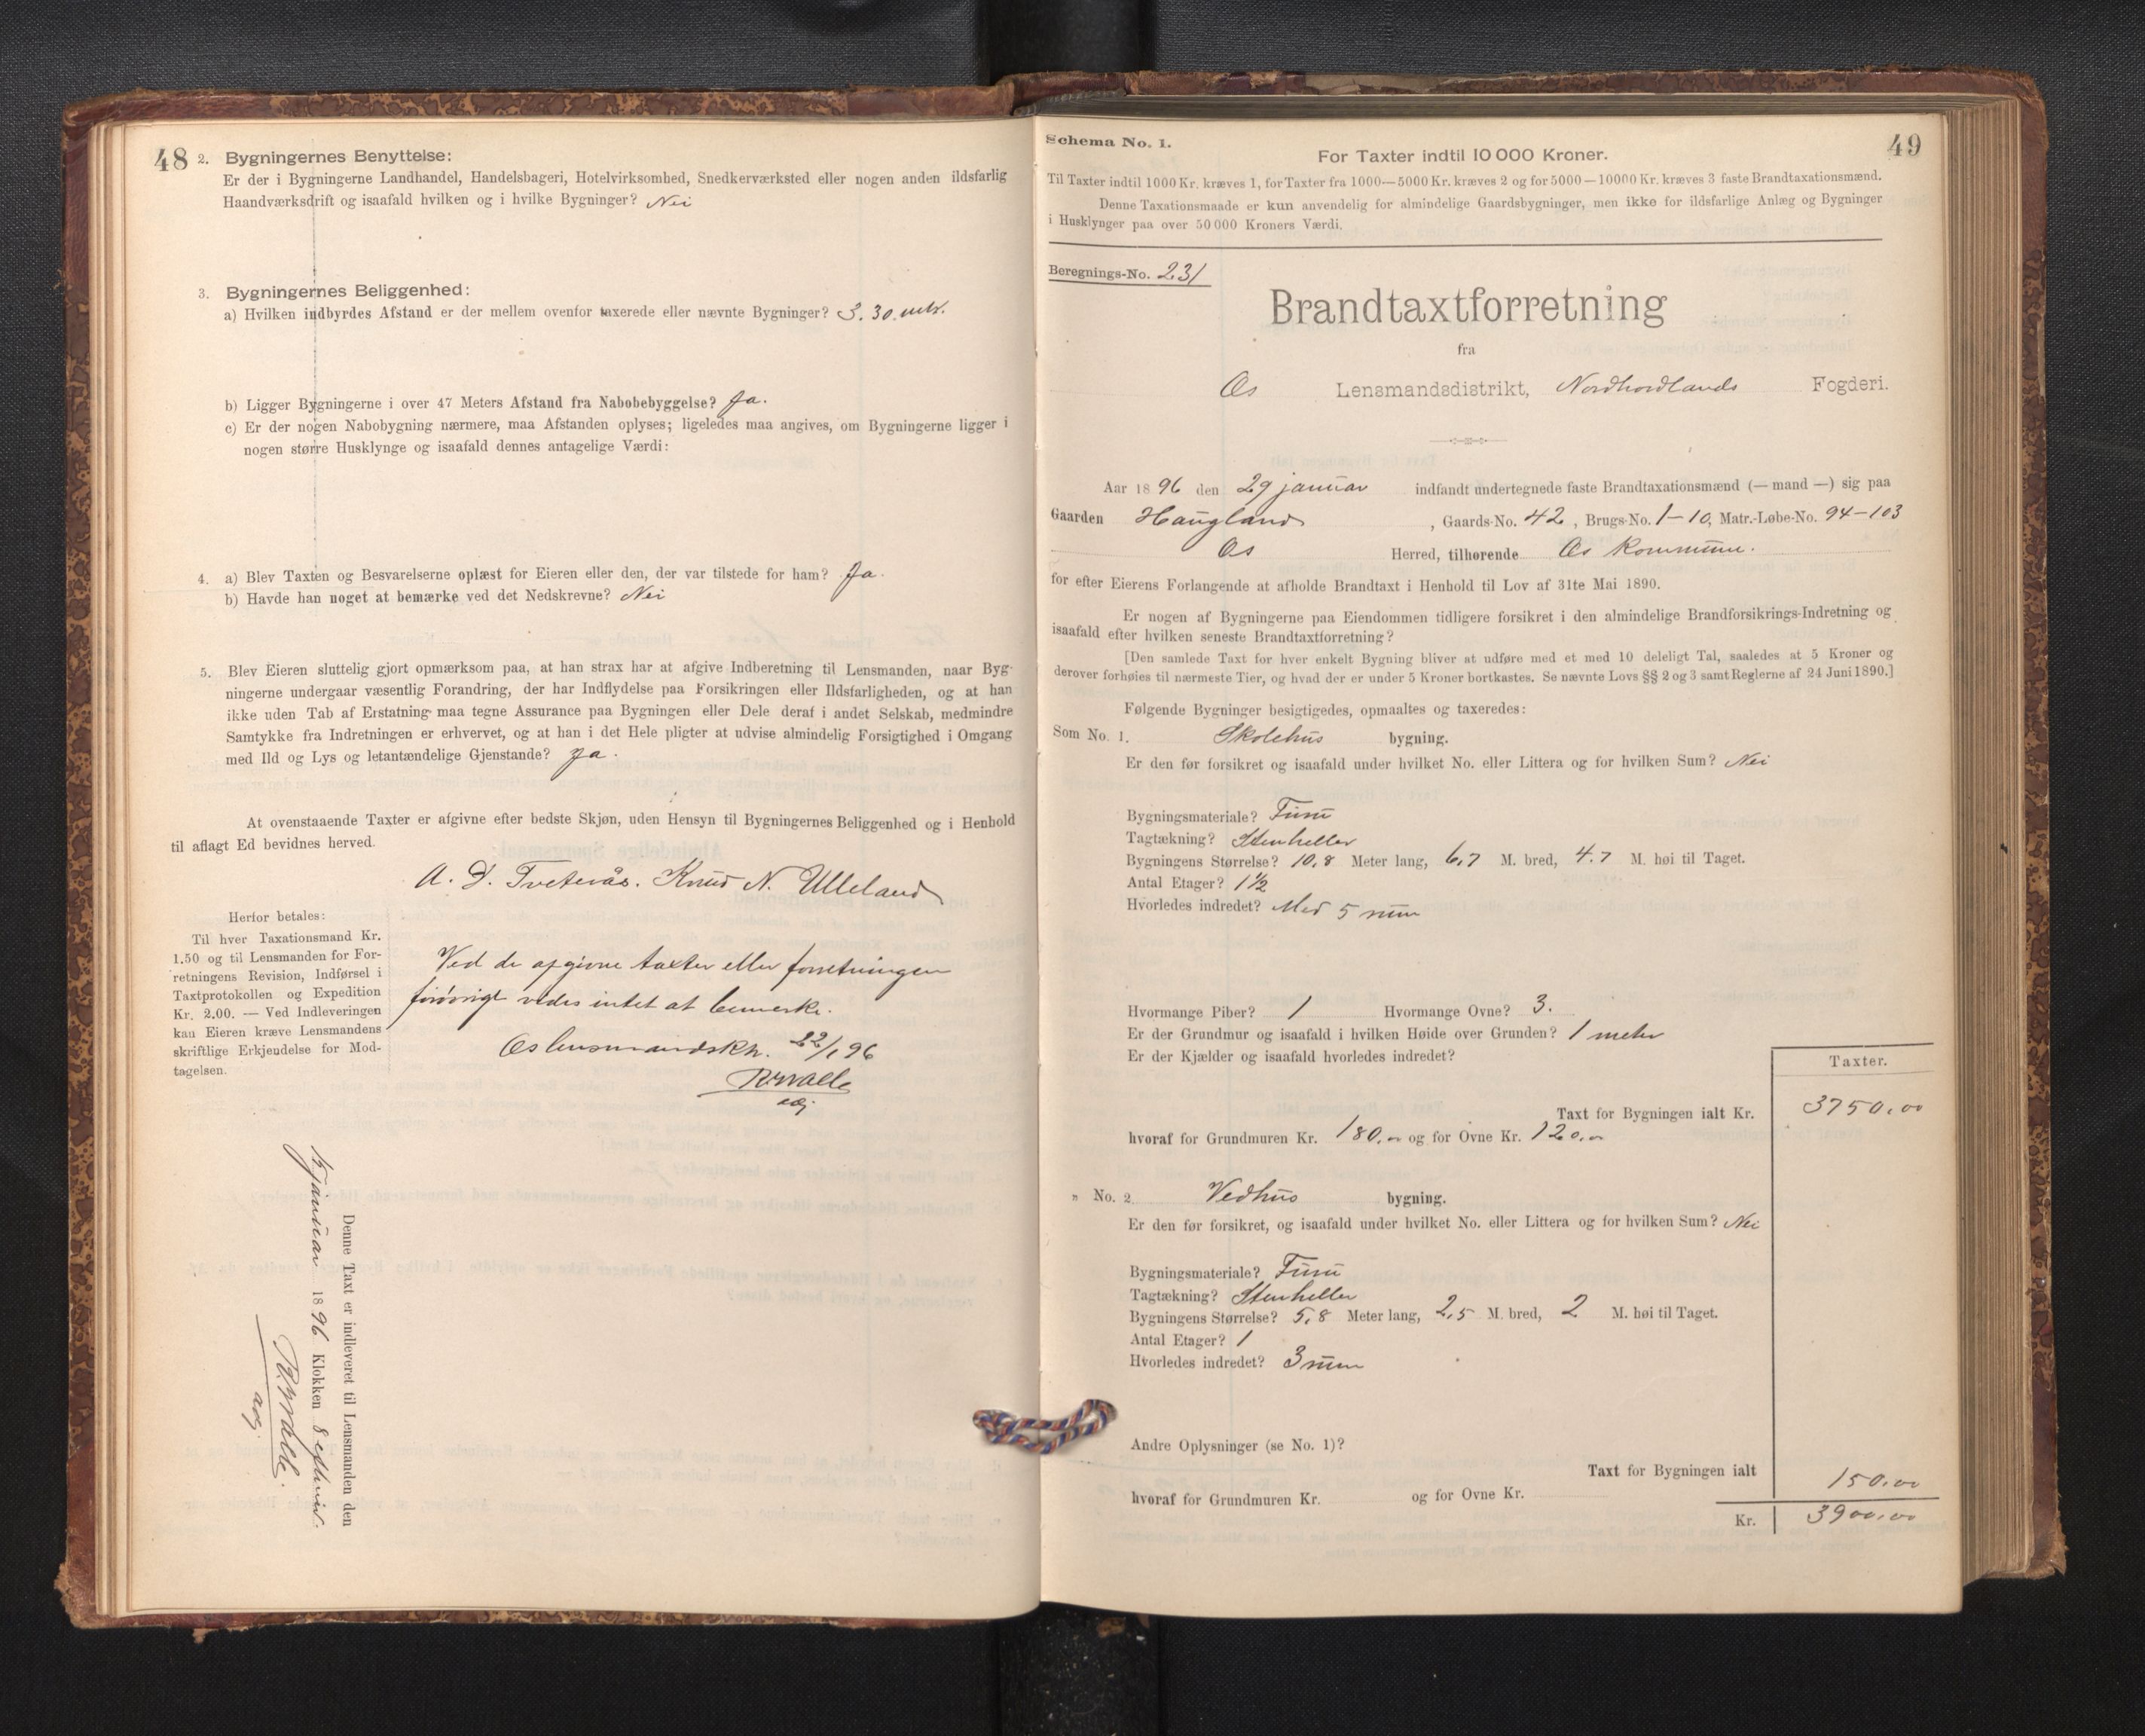 48
2. Bygningernes Benyttelse:
Er der i Bygningerne Landhandel, Handelsbageri, Hotelvirksomhed, Snedkerværksted eller nogen anden ildsfarlig
Haandværksdrift og isaafald hvilken og i hvilke Bygninger? Nei
3. Bygningernes Beliggenhed:
a) Hvilken indbyrdes Afstand er der mellem ovenfor taxerede eller nævnte Bygninger? 3.30 mtr.
b) Ligger Bygningerne i over 47 Meters Afstand fra Nabobebyggelse? Ja.
c) Er der nogen Nabobygning nærmere, maa Afstanden oplyses; ligeledes maa angives, om Bygningerne ligger i
nogen større Husklynge og isaafald dennes antagelige Værdi:
4. a) Blev Taxten og Besvarelserne oplæst for Eieren eller den, der var tilstede for ham? Ja.
b) Havde han noget at bemærke ved det Nedskrevne? Nei
5. Blev Eieren sluttelig gjort opmærksom paa, at han strax har at afgive Indberetning til Lensmanden, naar Byg-
ningerne undergaar væsentlig Forandring, der har Indflydelse paa Forsikringen eller Ildsfarligheden, og at han
ikke uden Tab af Erstatning maa tegne Assurance paa Bygningen eller Dele deraf i andet Selskab, medmindre
Samtykke fra Indretningen er erhvervet, og at han i det Hele pligter at udvise almindelig Forsigtighed i Omgang
med Ild og Lys og letantændelige Gjenstande? Ja.
At ovenstaaende Taxter er afgivne efter bedste Skjøn, uden Hensyn til Bygningernes Beliggenhed og i Henhold
til aflagt Ed bevidnes herved.
A. D. Tveterås. Knud N. Ulleland
Herfor betales:
Til hver Taxationsmand Kr.
1.50 og til Lensmanden for For-
retningens Revision, Indførsel i
Taxtprotokollen og Expedition
Kr. 2.00. — Ved Indleveringen
kan Eieren kræve Lensmandens
skriftlige Erkjendelse for Mod-
tagelsen.
Ved de afgivne taxter eller forretningen
forøvrigt vides intet at bemerke.
Os lensmandsktr. 22/1 96
Denne Taxt er indleveret til Lensmanden den
januar 1896 Klokken 8 efterm.
49
Schema No. 1.
For Taxter indtil 10 000 Kroner.
Til Taxter indtil 1000 Kr. kræves 1, for Taxter fra 1000—5000 Kr. kræves 2 og for 5000—10000 Kr. kræves 3 faste Brandtaxationsmænd.
Denne Taxationsmaade er kun anvendelig for almindelige Gaardsbygninger, men ikke for ildsfarlige Anlæg og Bygninger
i Husklynger paa over 50 000 Kroners Værdi.
Beregnings-No. 231
Brandtaxtforretning
fra
Os Lensmandsdistrikt, Nordhordlands Fogderi.
Aar 1896 den 29 januar indfandt undertegnede faste Brandtaxationsmænd (— mand —) sig paa
Gaarden Haugland, Gaards-No. 42, Brugs-No. 1-10, Matr.-Løbe-No. 94-103
Os Herred, tilhørende Os kommune.
for efter Eierens Forlangende at afholde Brandtaxt i Henhold til Lov af 31te Mai 1890.
Er nogen af Bygningerne paa Eiendommen tidligere forsikret i den almindelige Brandforsikrings-Indretning og
isaafald efter hvilken seneste Brandtaxtforretning?
[Den samlede Taxt for hver enkelt Bygning bliver at udføre med et med 10 deleligt Tal, saaledes at 5 Kroner og
derover forhøies til nærmeste Tier, og hvad der er under 5 Kroner bortkastes. Se nævnte Lovs §§ 2 og 3 samt Reglerne af 24 Juni 1890.]
Følgende Bygninger besigtigedes, opmaaltes og taxeredes:
Som No. 1. Skolehus bygning.
Er den før forsikret og isaafald under hvilket No. eller Littera og for hvilken Sum? Nei
Bygningsmateriale? Furu
Tagtækning? Stenheller
Bygningens Størrelse? 10,8 Meter lang, 6,7 M. bred, 4.7 M. høi til Taget.
Antal Etager? 1½
Hvorledes indredet? Med 5 rum
Hvormange Piber? 1 Hvormange Ovne? 3.
Er der Grundmur og isaafald i hvilken Høide over Grunden? 1 meter
Er der Kjælder og isaafald hvorledes indredet?
Taxter.
Taxt for Bygningen ialt Kr. 3750,00
hvoraf for Grundmuren Kr. 180,00 og for Ovne Kr. 120,00
" No. 2. Vedhus bygning.
Er den før forsikret, og isaafald under hvilket No. eller Littera og for hvilken Sum? Nei
Bygningsmateriale? Furu
Tagtækning? Stenheller
Bygningens Størrelse? 5,8 Meter lang, 2,5 M. bred, 2 M. høi til Taget.
Antal Etager? 1
Hvorledes indredet? 3 rum
Andre Oplysninger (se No. 1)?
Taxt for Bygningen ialt 150,00
hvoraf for Grundmuren Kr. og for Ovne Kr.
Kr. 3900,00